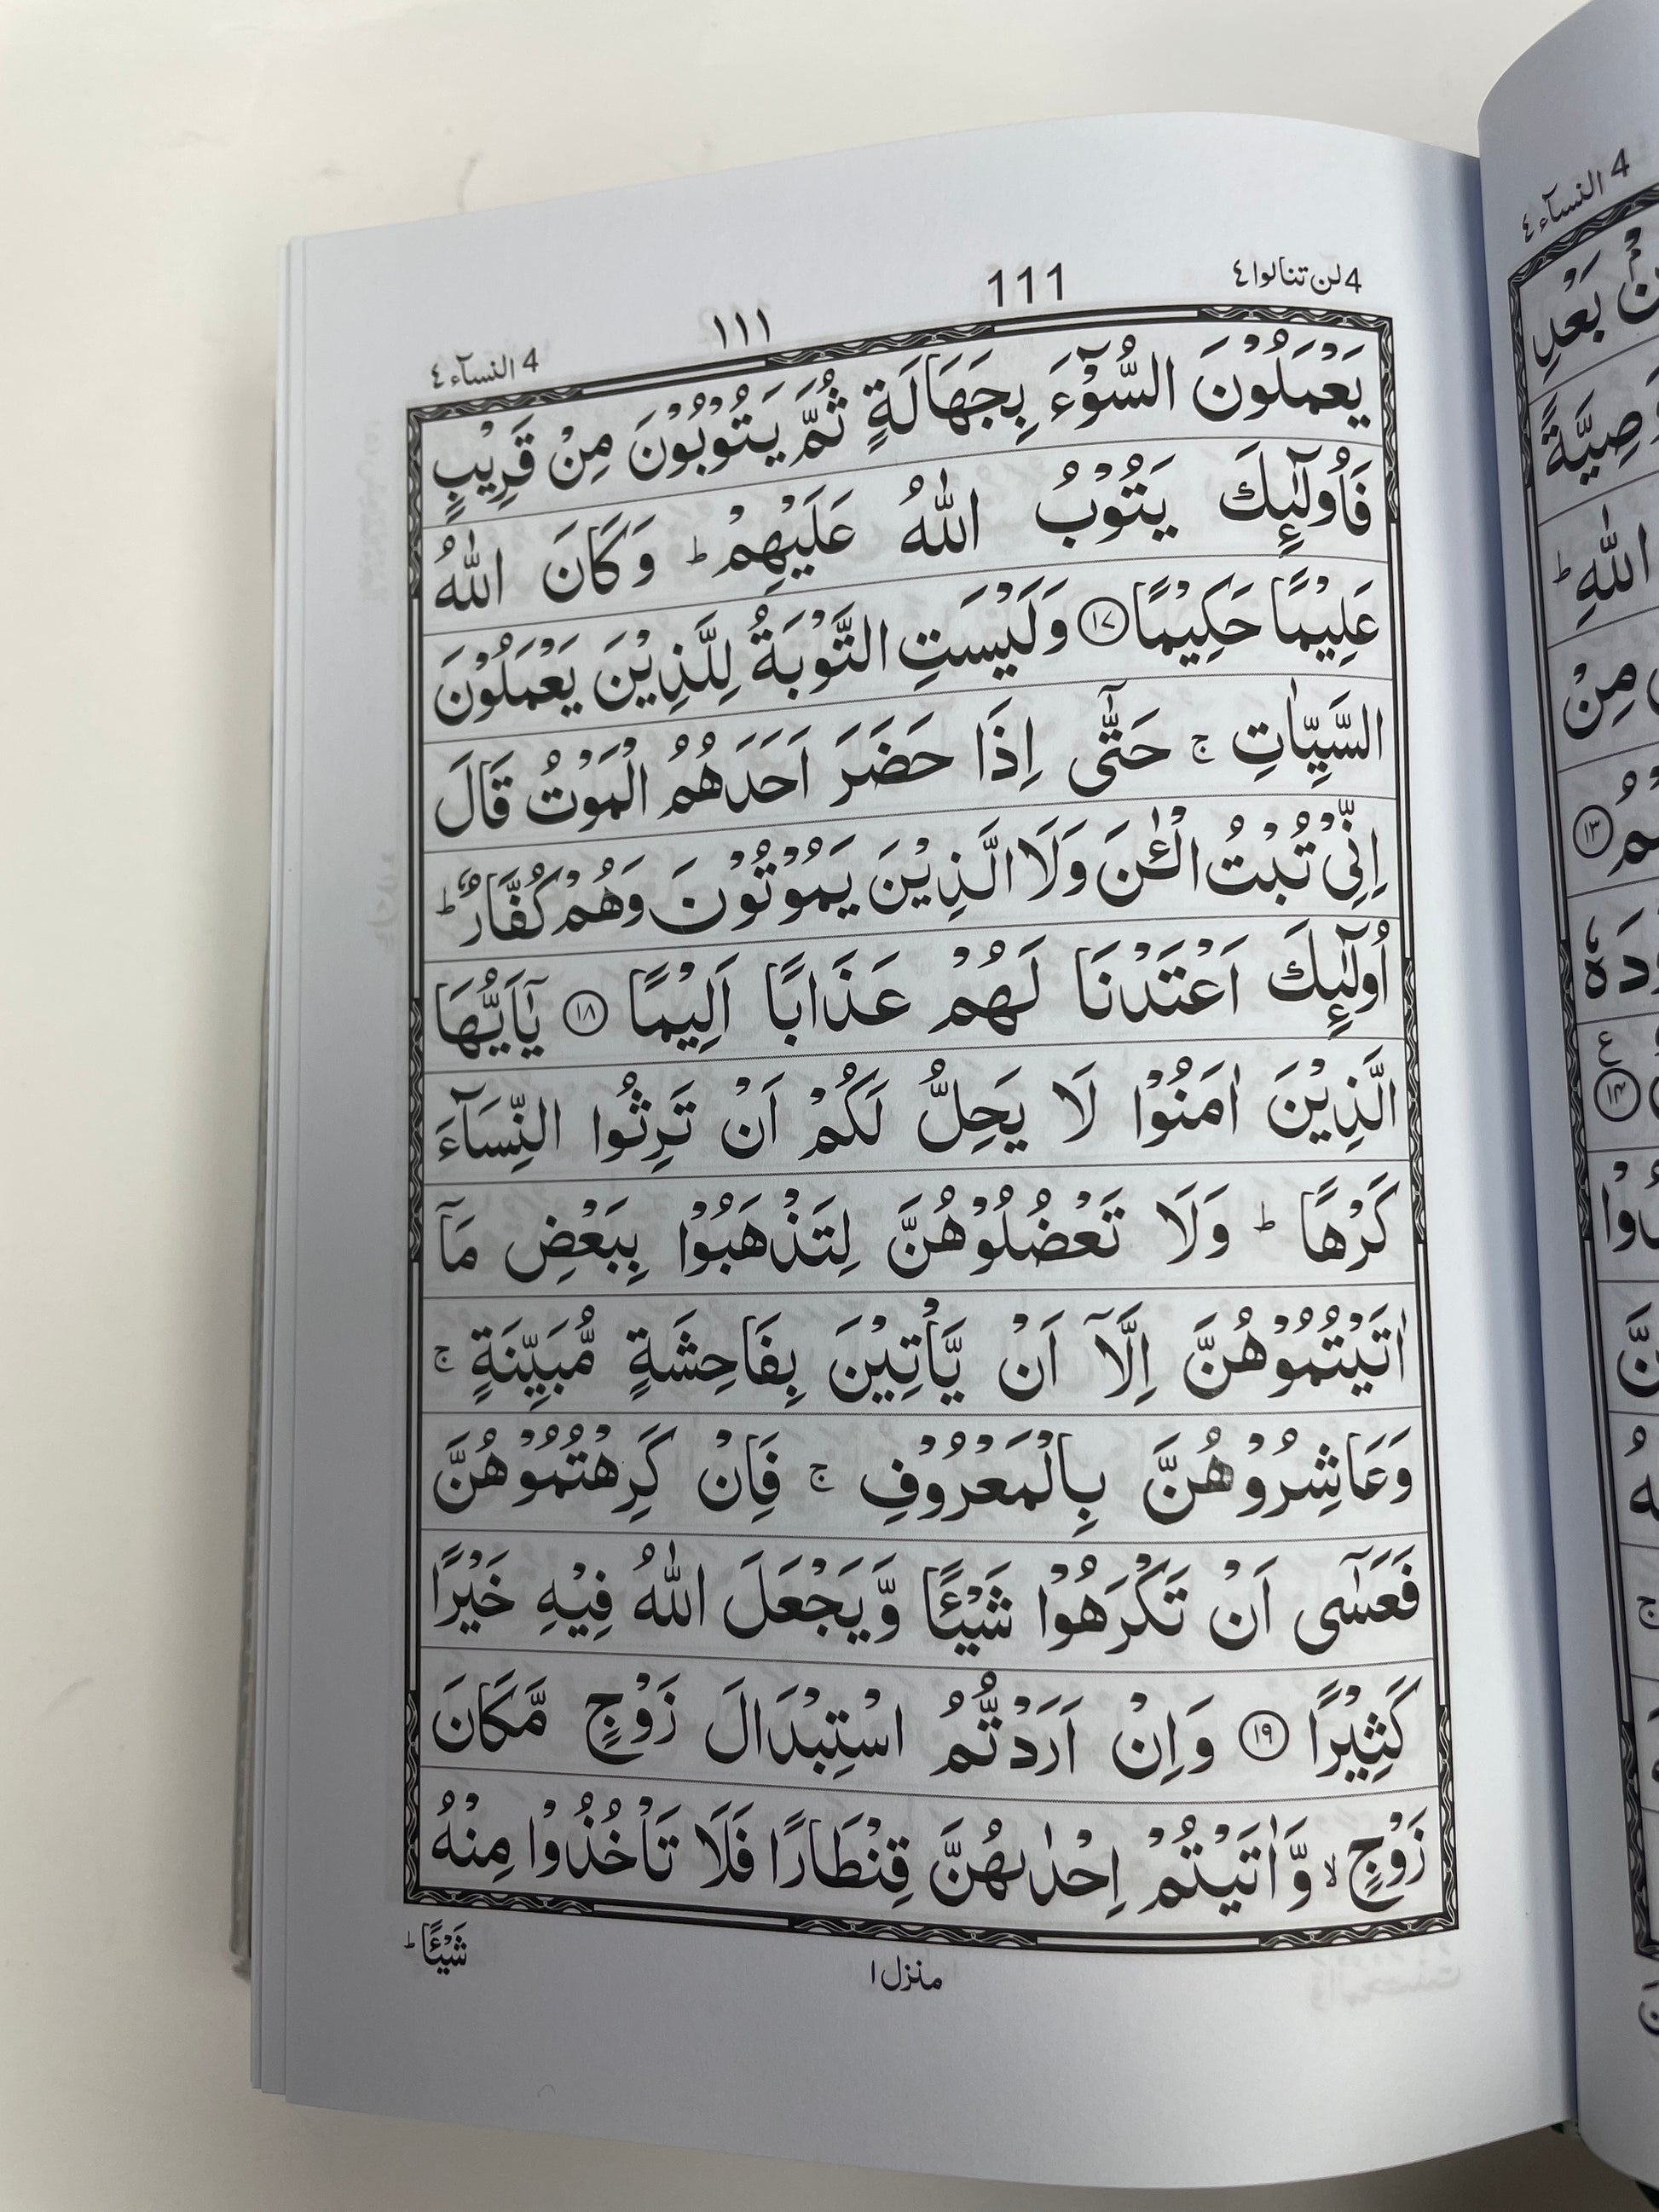 4 لن تنالوا ٤
111
١١١
4 النسآء ٤
يَعْمَلُوْنَ السُّوْٓءَ بِجَهَالَةٍ ثُمَّ يَتُوْبُوْنَ مِنْ قَرِيْبٍ
فَاُولٰٓئِكَ يَتُوْبُ اللّٰهُ عَلَيْهِمْ ؕ وَكَانَ اللّٰهُ
عَلِيْمًا حَكِيْمًا ١٧ وَلَيْسَتِ التَّوْبَةُ لِلَّذِيْنَ يَعْمَلُوْنَ
السَّيِّاٰتِ ۚ حَتّٰٓى اِذَا حَضَرَ اَحَدَهُمُ الْمَوْتُ قَالَ
اِنِّىْ تُبْتُ الْـٰٔنَ وَلَا الَّذِيْنَ يَمُوْتُوْنَ وَهُمْ كُفَّارٌ ؕ
اُولٰٓئِكَ اَعْتَدْنَا لَهُمْ عَذَابًا اَلِيْمًا ١٨ يٰٓاَيُّهَا
الَّذِيْنَ اٰمَنُوْا لَا يَحِلُّ لَكُمْ اَنْ تَرِثُوا النِّسَآءَ
كَرْهًا ؕ وَلَا تَعْضُلُوْهُنَّ لِتَذْهَبُوْا بِبَعْضِ مَآ
اٰتَيْتُمُوْهُنَّ اِلَّآ اَنْ يَّاْتِيْنَ بِفَاحِشَةٍ مُّبَيِّنَةٍ ۚ
وَعَاشِرُوْهُنَّ بِالْمَعْرُوْفِ ۚ فَاِنْ كَرِهْتُمُوْهُنَّ
فَعَسٰٓى اَنْ تَكْرَهُوْا شَيْـًٔا وَّيَجْعَلَ اللّٰهُ فِيْهِ خَيْرًا
كَثِيْرًا ١٩ وَاِنْ اَرَدْتُّمُ اسْتِبْدَالَ زَوْجٍ مَّكَانَ
زَوْجٍ ۙ وَّاٰتَيْتُمْ اِحْدٰىهُنَّ قِنْطَارًا فَلَا تَاْخُذُوْا مِنْهُ
شَيْـًٔا ؕ
منزل ١
4 النسآء ٤
نْۢ بَعْدِ
وَصِيَّةً
اللّٰهِ ؕ
مِنْ
١٣
ع
١٤